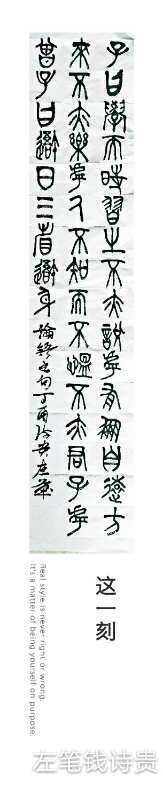 子曰學而時習之不亦說乎有朋自遠方
來不亦樂乎人不知而不慍不亦君子乎
曾子曰吾日三省吾身 論語之句丁酉左筆
这一刻
Real style is never right or wrong.
It's a matter of being yourself on purpose.
左笔钱诗贵